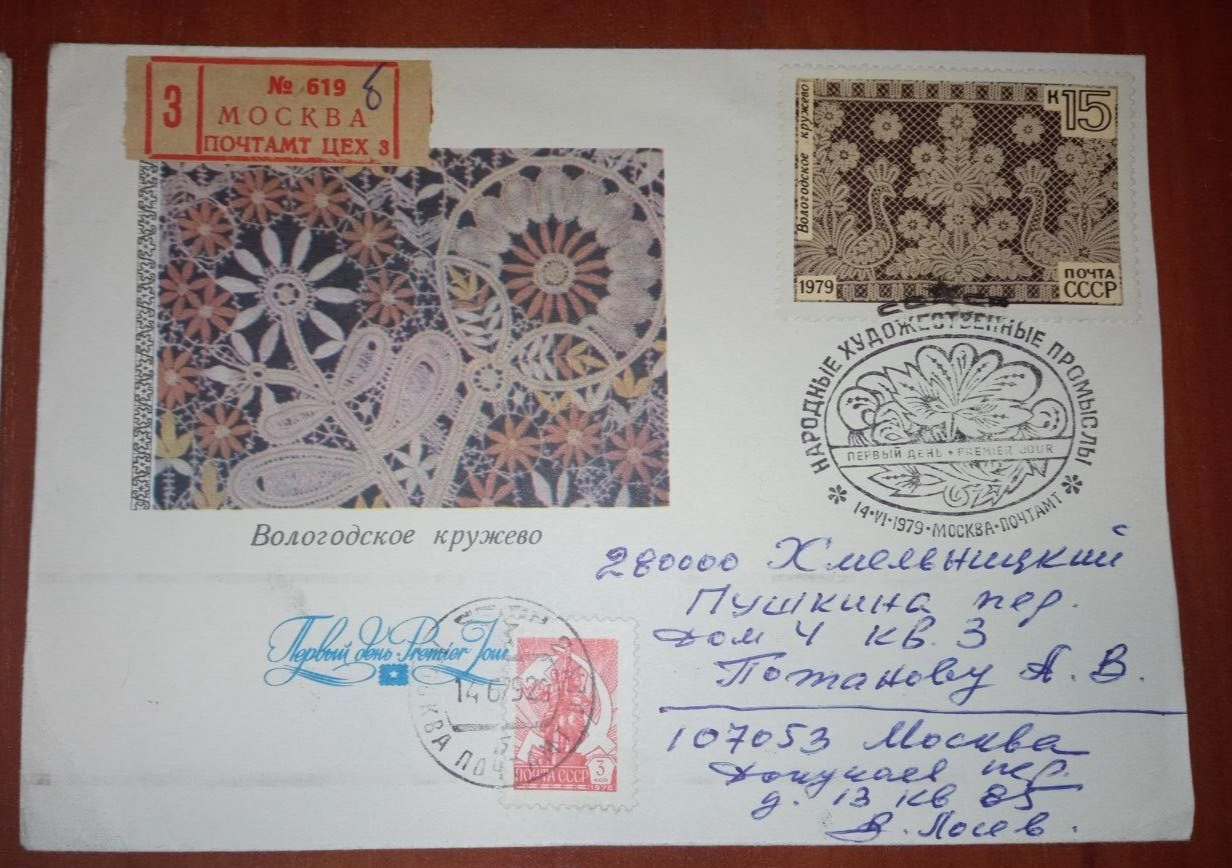 З
№ 619 б
МОСКВА
ПОЧТАМТ ЦЕХ 3
Вологодское кружево
К 15
1979
ПОЧТА
СССР
НАРОДНЫЕ ХУДОЖЕСТВЕННЫЕ ПРОМЫСЛЫ
ПЕРВЫЙ ДЕНЬ • PREMIER JOUR
14•VI•1979•МОСКВА-ПОЧТАМТ
Вологодское кружево
280000 Хмельницкий
Пушкина пер.
дом 4 кв. 3
Потанову А. В.
Первый день Premier Jour
МОСКВА ПОЧТАМТ
ПОЧТА СССР 3 КОП
1976
107053 Москва
Докучаев пер.
д. 13 кв 85
В. Лосев.